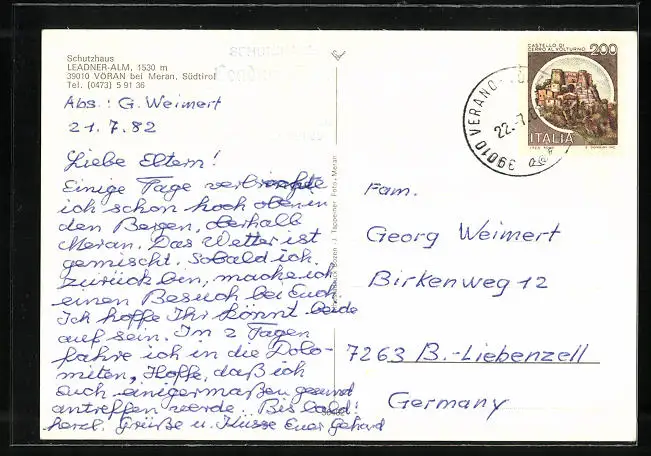 Schutzhaus
LEADNER-ALM, 1530 m
39010 VÖRAN bei Meran, Südtirol
Tel. (0473) 5 91 36
Abs.: G. Weimert
21.7.82
Liebe Eltern!
Einige Tage verbrachte
ich schon hoch oben in
den Bergen, oberhalb
Meran. Das Wetter ist
gemischt. Sobald ich
zurück bin, mache ich
einen Besuch bei Euch.
Ich hoffe Ihr könnt beide
auf sein. In 2 Tagen
fahre ich in die Dolo-
miten. Hoffe, daß ich
euch einigermaßen gesund
antreffen werde. Bis bald!
herzl. Grüße u. Küsse Euer Gerhard
J. Tappeiner Foto, Meran
CASTELLO DI
CERRO AL VOLTURNO 200
ITALIA
39010 VERANO
22.7.
Fam.
Georg Weimert
Birkenweg 12
7263 B.-Liebenzell
Germany